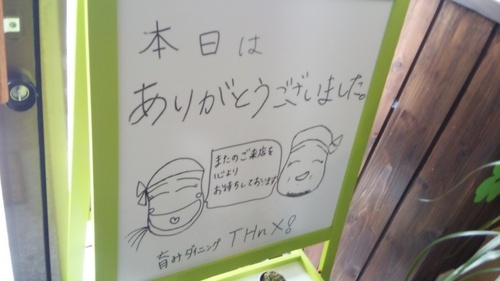 本日は
ありがとうございました。
またのご来店を
心より
お待ちしております
育みダイニング THnX!